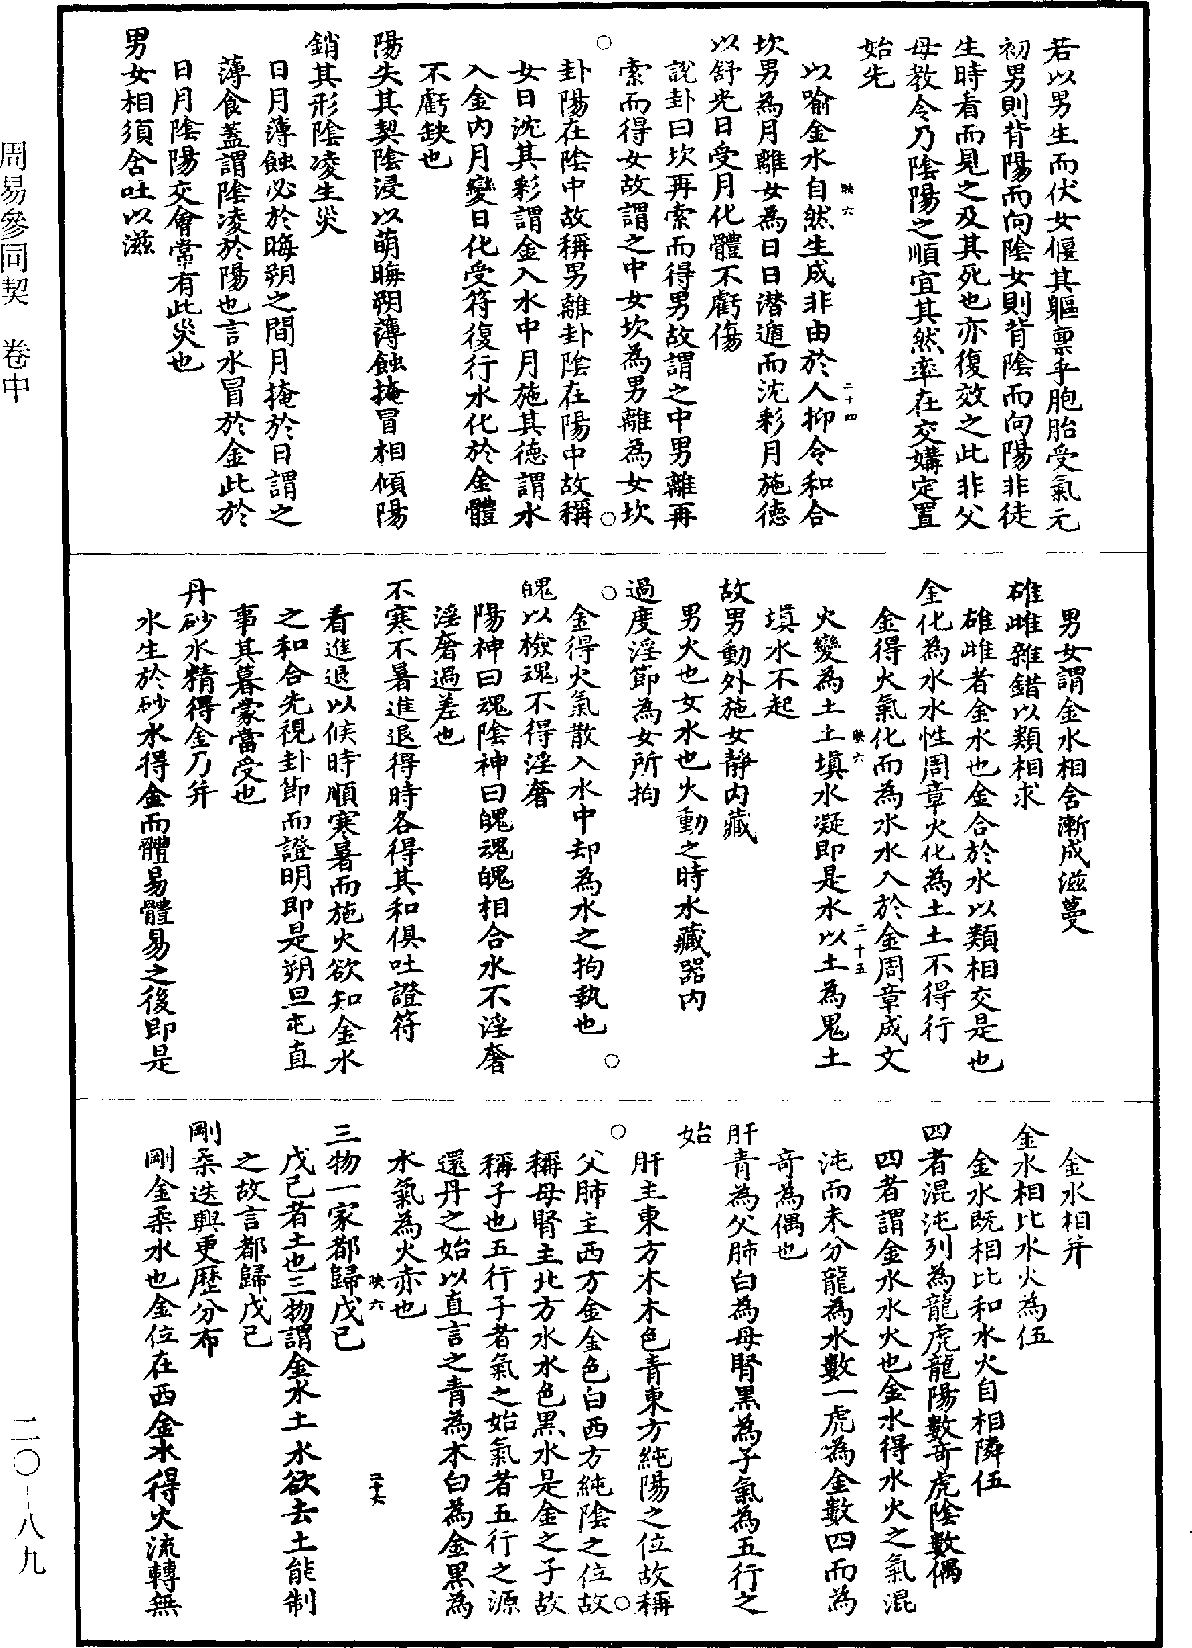 若以男生而伏女偃其軀稟乎胞胎受氣元
初男則背陽而向陰女則背陰而向陽非徒
生時看而見之及其死也亦復效之此非父
母教令乃陰陽之順宜其然率在交媾定置
始先
以喻金水自然生成非由於人抑令和合
映六
二十四
坎男為月離女為日日潛適而沈彩月施德
以舒光日受月化體不虧傷
說卦曰坎再索而得男故謂之中男離再
索而得女故謂之中女坎為男離為女坎
卦陽在陰中故稱男離卦陰在陽中故稱
女日沈其彩謂金入水中月施其德謂水
入金內月變日化受符復行水化於金體
不虧缺也
陽失其契陰浸以萌晦朔薄蝕掩冒相傾陽
銷其形陰凌生災
日月薄蝕必於晦朔之間月掩於日謂之
薄食蓋謂陰凌於陽也言水冒於金此於
日月陰陽交會常有此災也
男女相須含吐以滋
男女謂金水相含漸成滋蔓
雄雌雜錯以類相求
雄雌者金水也金合於水以類相交是也
金化為水水性周章火化為土土不得行
金得火氣化而為水水入於金周章成文
映六
二十五
火變為土土填水凝即是水以土為鬼土
填水不起
故男動外施女靜內藏
男火也女水也火動之時水藏器內
過度淫節為女所拘
金得火氣散入水中却為水之拘執也
魄以檢魂不得淫奢
陽神曰魂陰神曰魄魂魄相合水不淫奢
淫奢過差也
不寒不暑進退得時各得其和俱吐證符
看進退以候時順寒暑而施火欲知金水
之和合先視卦節而證明即是朔旦屯直
事其暮蒙當受也
丹砂水精得金乃并
水生於砂水得金而體易體易之後即是
金水相并
金水相比水火為伍
金水既相比和水火自相隣伍
四者混沌列為龍虎龍陽數奇虎陰數偶
四者謂金水水火也金水得水火之氣混
沌而未分龍為水數一虎為金數四而為
奇為偶也
肝青為父肺白為母腎黑為子氣為五行之
始
肝主東方木木色青東方純陽之位故稱
父肺主西方金金色白西方純陰之位故
稱母腎主北方水水色黑水是金之子故
稱子也五行子者氣之始氣者五行之源
還丹之始以直言之青為木白為金黑為
水氣為火赤也
映六
二十六
三物一家都歸戊己
戊己者土也三物謂金水土水欲去土能制
之故言都歸戊己
剛柔迭興更歷分布
剛金柔水也金位在西金水得火流轉無
周易參同契 卷中
二〇-八九